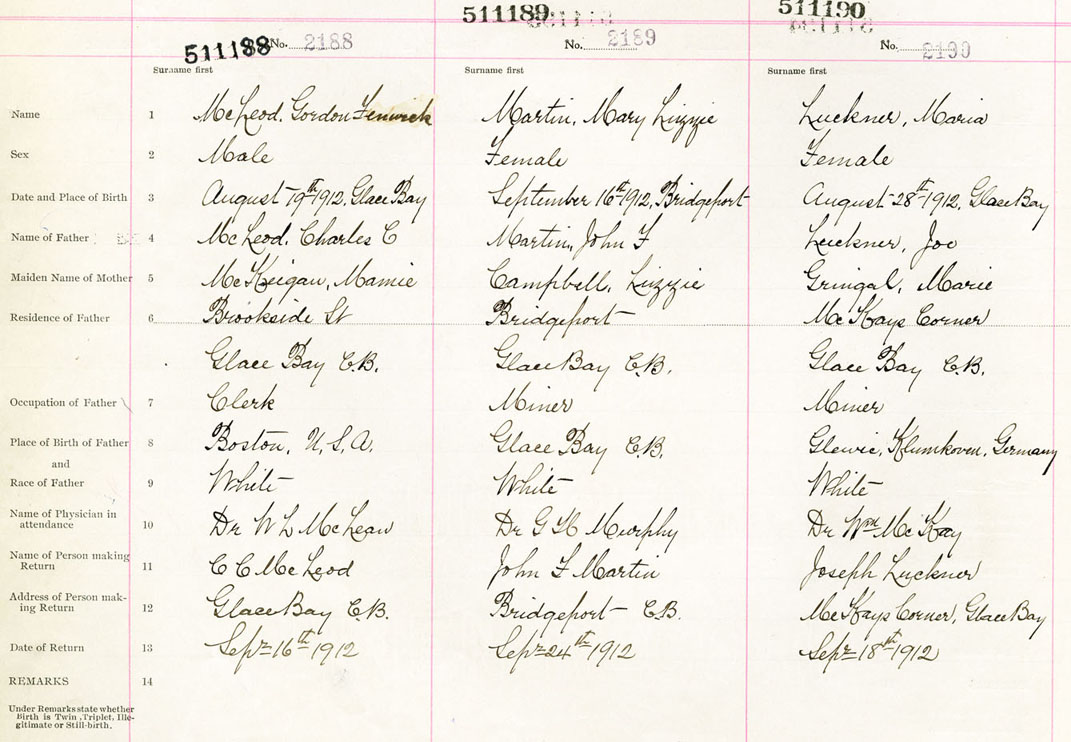 511188 511189 511190
No. 2188 No. 2189 No. 2190
Surname first Surname first Surname first
Name 1 McLeod, Gordon Fenwick Martin, Mary Lizzie Luckner, Maria
Sex 2 Male Female Female
Date and Place of Birth 3 August 19th 1912, Glace Bay September 16th 1912, Bridgeport August 28th 1912, Glace Bay
Name of Father 4 McLeod, Charles C Martin, John F Luckner, Joe
Maiden Name of Mother 5 McKeigan, Mamie Campbell, Lizzie Gringal, Marie
Residence of Father 6 Brookside St Bridgeport McKays Corner
Glace Bay C.B. Glace Bay C.B. Glace Bay C.B.
Occupation of Father 7 Clerk Miner Miner
Place of Birth of Father 8 Boston, U,S,A. Glace Bay C.B. Glewic, Klumkoven, Germany
and
Race of Father 9 White White White
Name of Physician in
attendance 10 Dr W L McLean Dr G H Murphy Dr Wm McKay
Name of Person making
Return 11 C C McLeod John F Martin Joseph Luckner
Address of Person mak-
ing Return 12 Glace Bay C.B. Bridgeport C.B. McKays Corner, Glace Bay
Date of Return 13 Sept 16th 1912 Sept 24th 1912 Sept 18st 1912
REMARKS 14
Under Remarks state whether
Birth is Twin, Triplet, Ille-
gitimate or Still-birth.